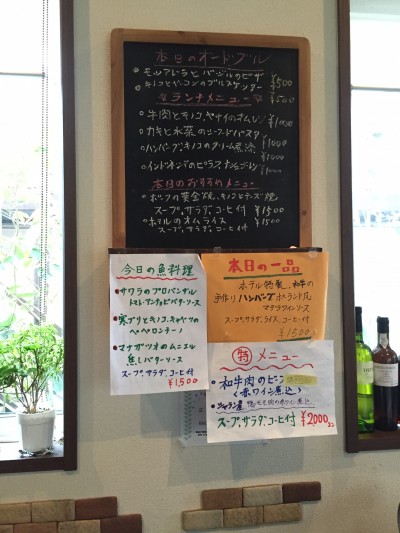 本日のオードブル
モッツァレラとバージルのピザ ¥500
キノコとベーコンのブルスケッター ¥500
ランチメニュー
牛肉とキノコ、ヤサイのオムレツ ¥1000
カキと水菜の ¥1000
ハンバーグとキノコのクリーム煮添 ¥1000
¥1000
本日のおすすめメニュー
ポークの黄金焼、キノコとチーズ焼
スープ、サラダ、コーヒ付 ¥1500
ホテルのオムライス
スープ、サラダ、コーヒ付 ¥1500
今日の魚料理
サワラのプロバンサル
寒ブリとキノコ、キャベツの
ペペロンチーノ
マナガツオのムニエル
焦しバターソース
スープ、サラダ、コーヒ付
¥1,500
本日の一品
ホテル特製、和牛の
手作りハンバーグ
マデラワインソース
スープ、サラダ、ライス、コーヒ付
¥1500
特 メニュー
和牛肉の
<赤ワイン煮込>
スープ、サラダ、コーヒ付 ¥2000